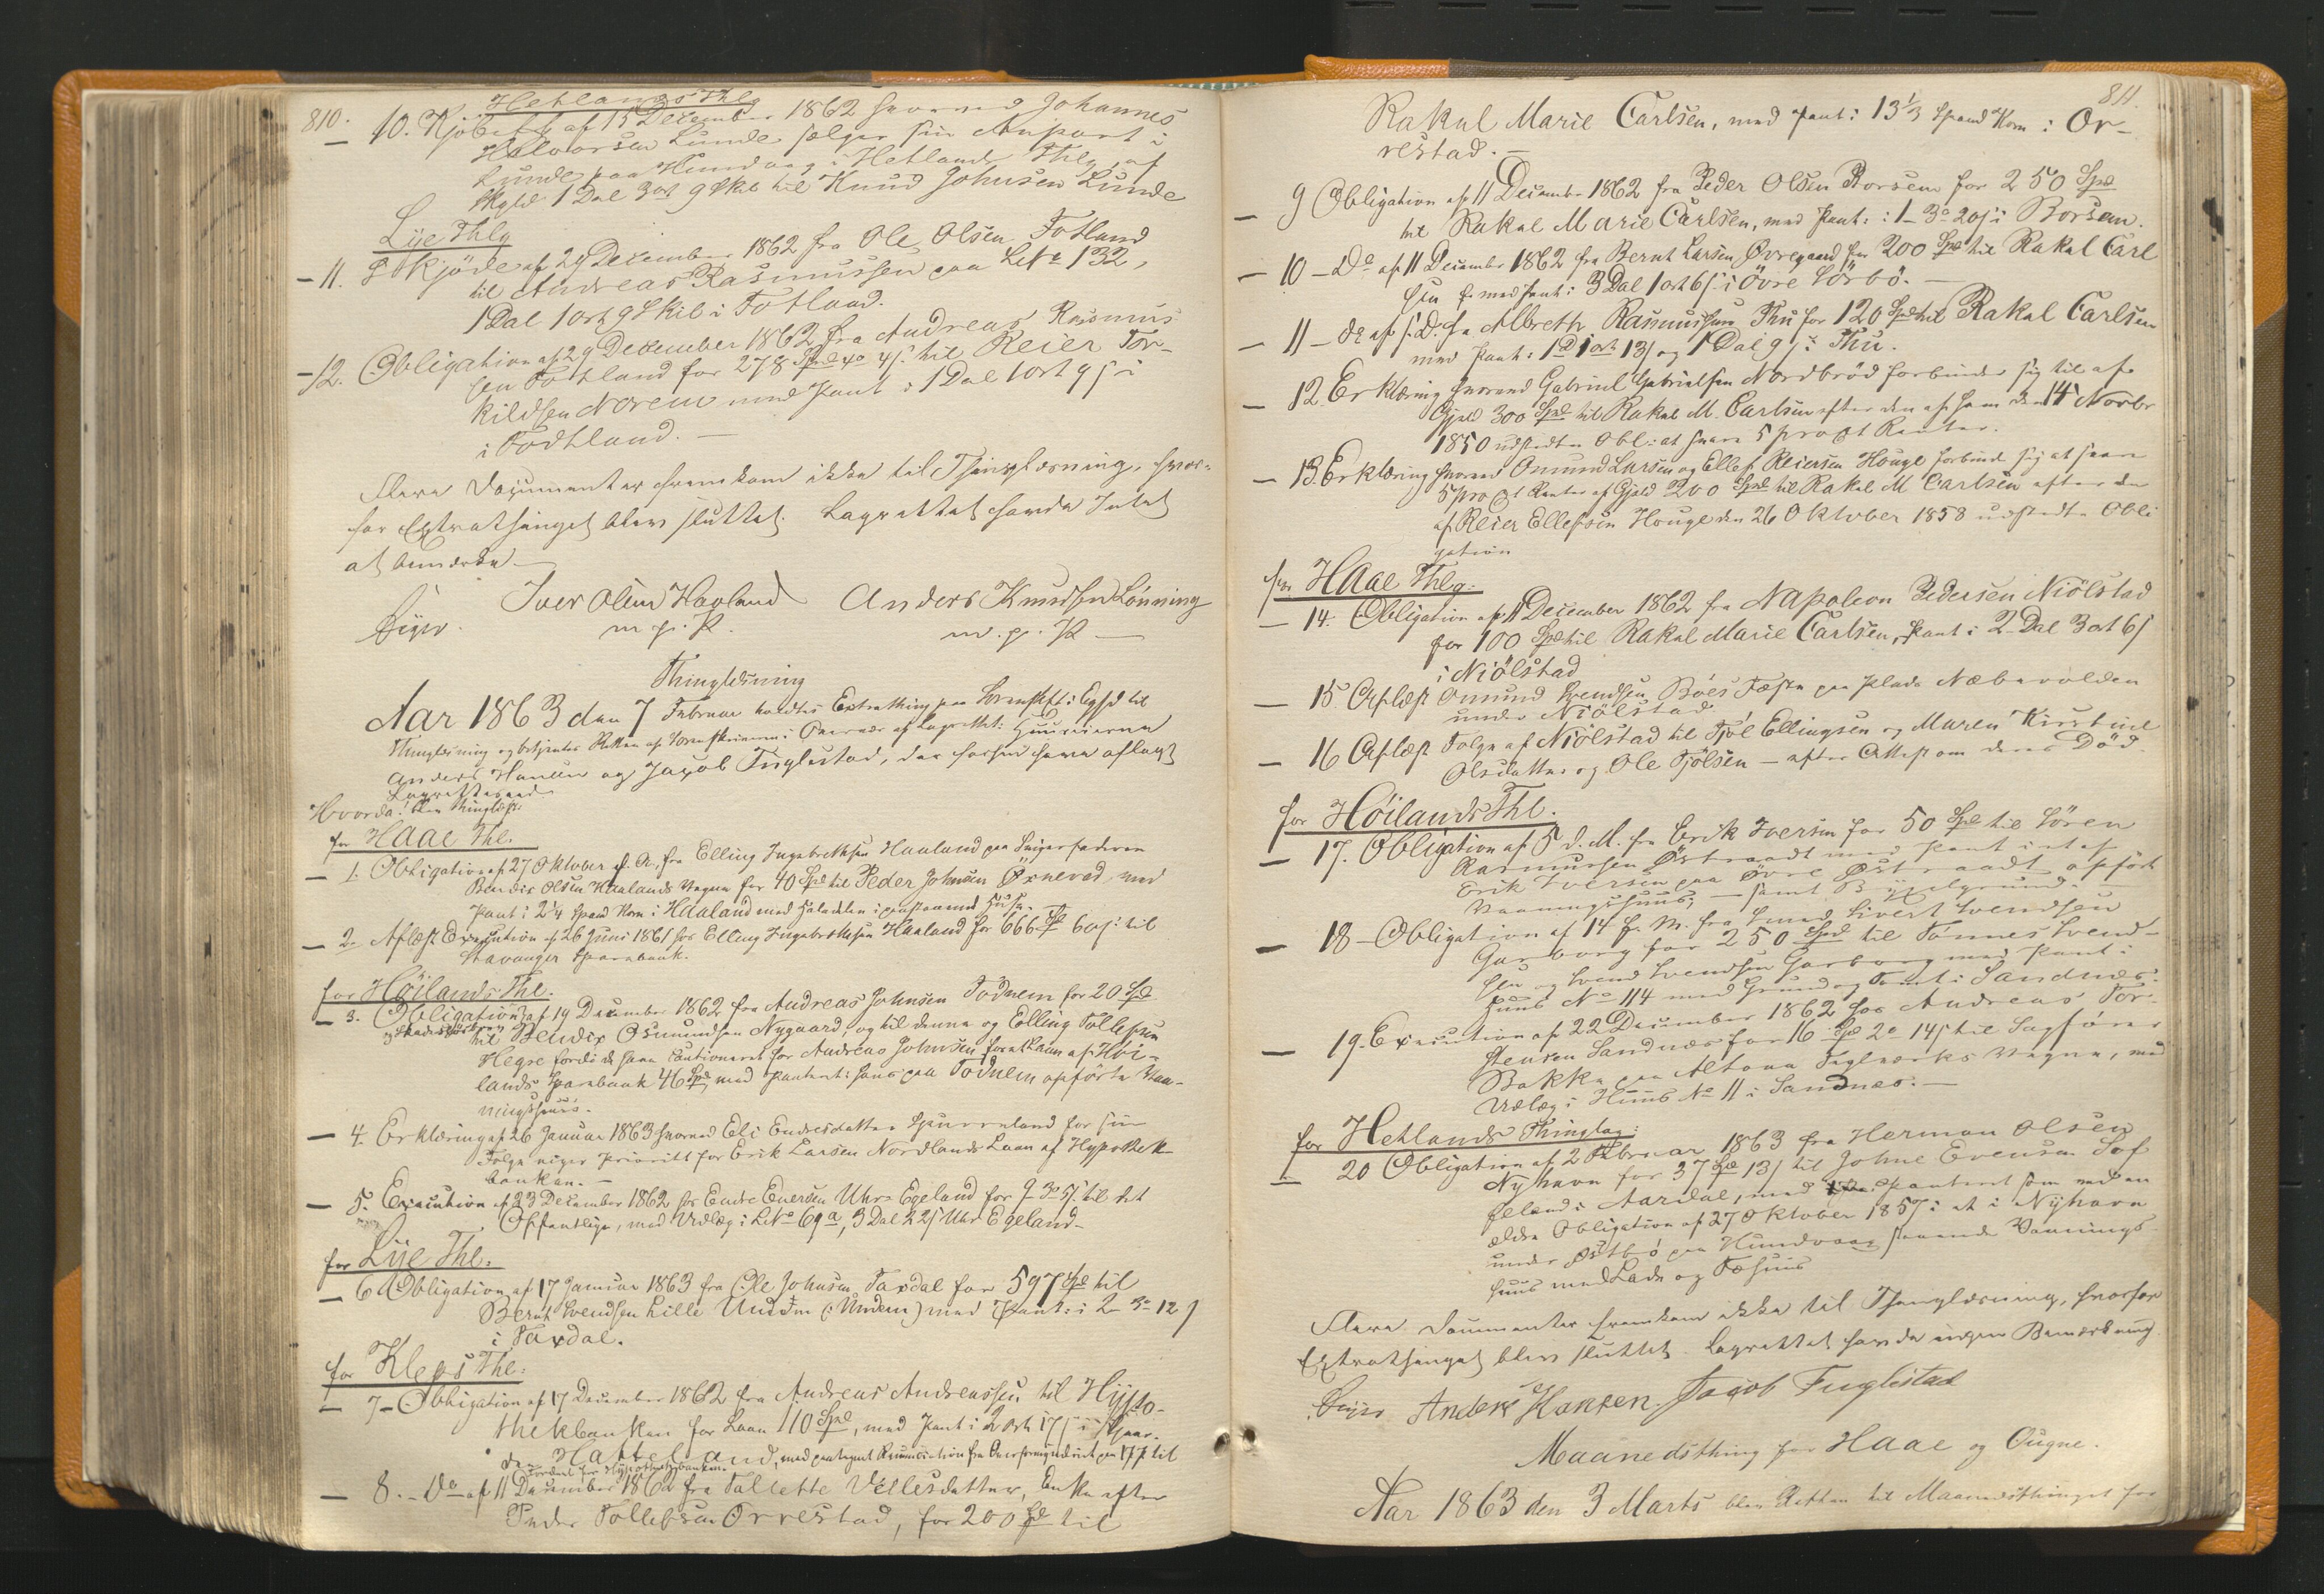 810.
Hetlands Thlg
10. Kjöbebr. af 15 December 1862 hvorved Johannes
Halvorsen Lunde sælger sin Anpart i
Lunde paa Hundvaag i Hetlands Thlg af
Skyld 1 Dal 3 ort 9 Skil til Knud Johnsen Lunde
Lye Thlg
11. Skjöde af 29 December 1862 fra Ole Olsen Fotland
til Andreas Rasmussen paa LNo 132,
1 Dal 1 ort 9 Skil i Fotland.
12. Obligation af 29 December 1862 fra Andreas Rasmus
sen Fotland for 278 Spd 4o 4 s. til Reier Tor-
kildsen Norem med Pant i 1 Dal 1 ort 9 s
i Fodtland. —
Flere Documenter fremkom ikke til Thinglæsning, hvor-
for Extrathinget blev sluttet. Lagrettet havde Intet
at bemærke —
Iver Olsen Haaland Anders Knudsen Lönning
m. p. P. m. p. P —
Thinglæsning
Aar 1863 den 7 Februar holdtes Extrathing paa Sorenskr.: til
Thinglæsning og betjentes Retten af Sorenskriveren i Overvær af Lagrettet:
Anders Hansen og Jacob Fuglestad, der forhen have aflagt
Lagrettesed.
Hvorda! blev thinglæst:
for Haae Thl.
1. Obligation af 27 Oktober f. A. fra Elling Ingebrethsen Haaland paa Svigerfaderen
Bendix Olsen Haalands Vegne for 40 Spd til Peder Johnsen Öxnevad med
Pant i 2 1/4 Spand Korn i Haaland med Halvdelen i paastaaende Huse. —
2. Aflæst Execution af 26 Juni 1861 hos Elling Ingebrethsen Haaland for 666 Sp 60 s: til
Stavanger Sparebank.
for Höilands Thl.
3. Obligation af 19 December 1862 fra Andreas Johnsen Todnem for 20 Spd
til Bendix Osmundsen Nygaard, og til denne og Elling Tollefsen
Hegre fordi de have cautioneret for Andreas Johnsen for et Laan af Höi-
lands Sparebank 46 Spd, med Panteret i hans paa Todnem opförte Vaa-
ningshuus.
4. Erklæring af 26 Januar 1863 hvorved Eli Endresdatter for sin
Folge viger Prioritet for Erik Larsen Nordlands Laan af Hypothek-
banken. —
5. Execution af 23 December 1862 hos Endre Enersen Uhre Egeland for 9 – 3o 5 s. til det
Offentlige, med Udlæg i LNo 69a, 3 Dal 2 2 s Uhr Egeland —
for Lye Thl.
6 Obligation af 17 Januar 1863 fra Ole Johnsen Taxdal for 597 Spd til
Bernt Svendsen Lille Undem (: Undem) med Pant: i 2 – 3o 12 s
i Taxdal.
for Kleps Thl:
7 – Obligation af 17 December 1862 fra Andreas Andreassen til Hypo-
thekbanken for Laan 110 Spd, med Pant i 2 ort 17 s i
Hatteland, med paategnet Renunciation fra
Fordeel for Hypothekbanken.
8. – Do af 11 December 1862 fra Tollette Vellesdatter, Enke efter
Peder Tollefsen Orrestad, for 200 Spd til
811.
Rakel Marie Carlsen, med Pant i 13 1/3 Spand Korn i Or-
restad. —
9 Obligation af 11 December 1862 fra Peder Olsen Borsem for 250 Spd
til Rakel Marie Carlsen, med Pant: i 1 – 3o 20 s i Borsem.
10 – Do af 11 December 1862 fra Bernt Larsen Övregaard for 200 Spd til Rakel Carl
sen med Pant i 3 Dal 1 ort 6 s i Övre Sörbö. —
11 – do af s. D. fra Albreth Rasmussen Thu for 120 Spd til Rakel Carlsen
med Pant i 1 D 1 ort 13 s og 1 Dal 9 s i Thu.
12 Erklæring hvorved Gabriel Gabrielsen Nordbröd forbinder sig til af
Gjeld 300 Spd til Rakel M. Carlsen efter den af ham den 14 Novbr
1850 udstedte Obl: at svare 5 pro Ct Renter.
13. Erklæring hvorved Omund Larsen og Ellef Reiersen Houge forbinde sig at svare
5 pro Ct Renter af Gjeld 200 Spd til Rakel M Carlsen efter den
af Reier Ellefsen Houge den 26 Oktober 1858 udstedte Obli
gation
for Haae Thlg:
14. Obligation af 11 December 1862 fra Napoleon Pedersen Niölstad
for 100 Spd til Rakel Marie Carlsen, Pant i 2 Dal 3 ort 6 s
i Niölstad
15 Aflæst Omund Svendsen Böes Fæste paa Plads Næbevolden
under Niölstad.
16 Aflæst Folge af Niölstad til Tjöl Ellingsen og Maren Kirstine
Olsdatter og Ole Tjölsen – efter Attest om deres Död.
for Höilands Thl.
17. Obligation af 5 d. M. fra Erik Iversen for 50 Spd til Sören
Rasmussen Östraadt med Pant i et af
Erik Iversen paa Övre Östraadt opfört
Vaaningshuus, – samt Bygselgrund.
18 – Obligation af 14 f. M. fra Svend Sivert Svendsen
Garborg for 250 Spd til Tönnes Svend-
sen og Svend Svendsen Garborg med Pant i
Huus No 114 med Grund og Tomt i Sandnæs.
19. Execution af 22 December 1862 hos Andreas Tor-
stensen Sandnæs for 16 Spd 2o 14 s til Sagförer
Bakke paa Altona Teglværks Vegne, med
Udlæg i Huus No 11 i Sandnæs. —
for Hetlands Thinglag:
20 Obligation af 2 Februar 1863 fra Herman Olsen
Nyhavn for 37 Spd 13 s til Johne Evensen Sof
feland i Aardal, med Panteret som med en
ældre Obligation af 27 Oktober 1857 i et i Nyhavn
under Östbö paa Hundvaag staaende Vaanings-
huus med Lade og Fæhuus
Flere Documenter fremkom ikke til Thinglæsning, hvorfor
Extrathinget blev sluttet. Lagrettet havde ingen Bemærkning.
Anders Hansen. Jacob Fuglestad
Maanedsthing for Haae og Ougne.
Aar 1863 den 3 Marts blev Retten til Maanedsthinget for